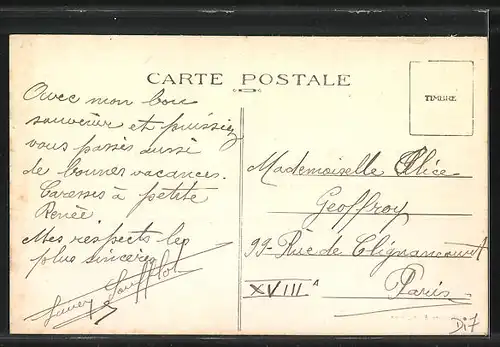 CARTE POSTALE
TIMBRE
Avec mon bon
souvenir et puissiez
vous passés aussi
de bonnes vacances.
Caresses à petite
Renée
Mes respects les
plus sincères
Mademoiselle Alice
Geoffroy
99 - Rue de Clignancourt
XVIII A
Paris
Di7